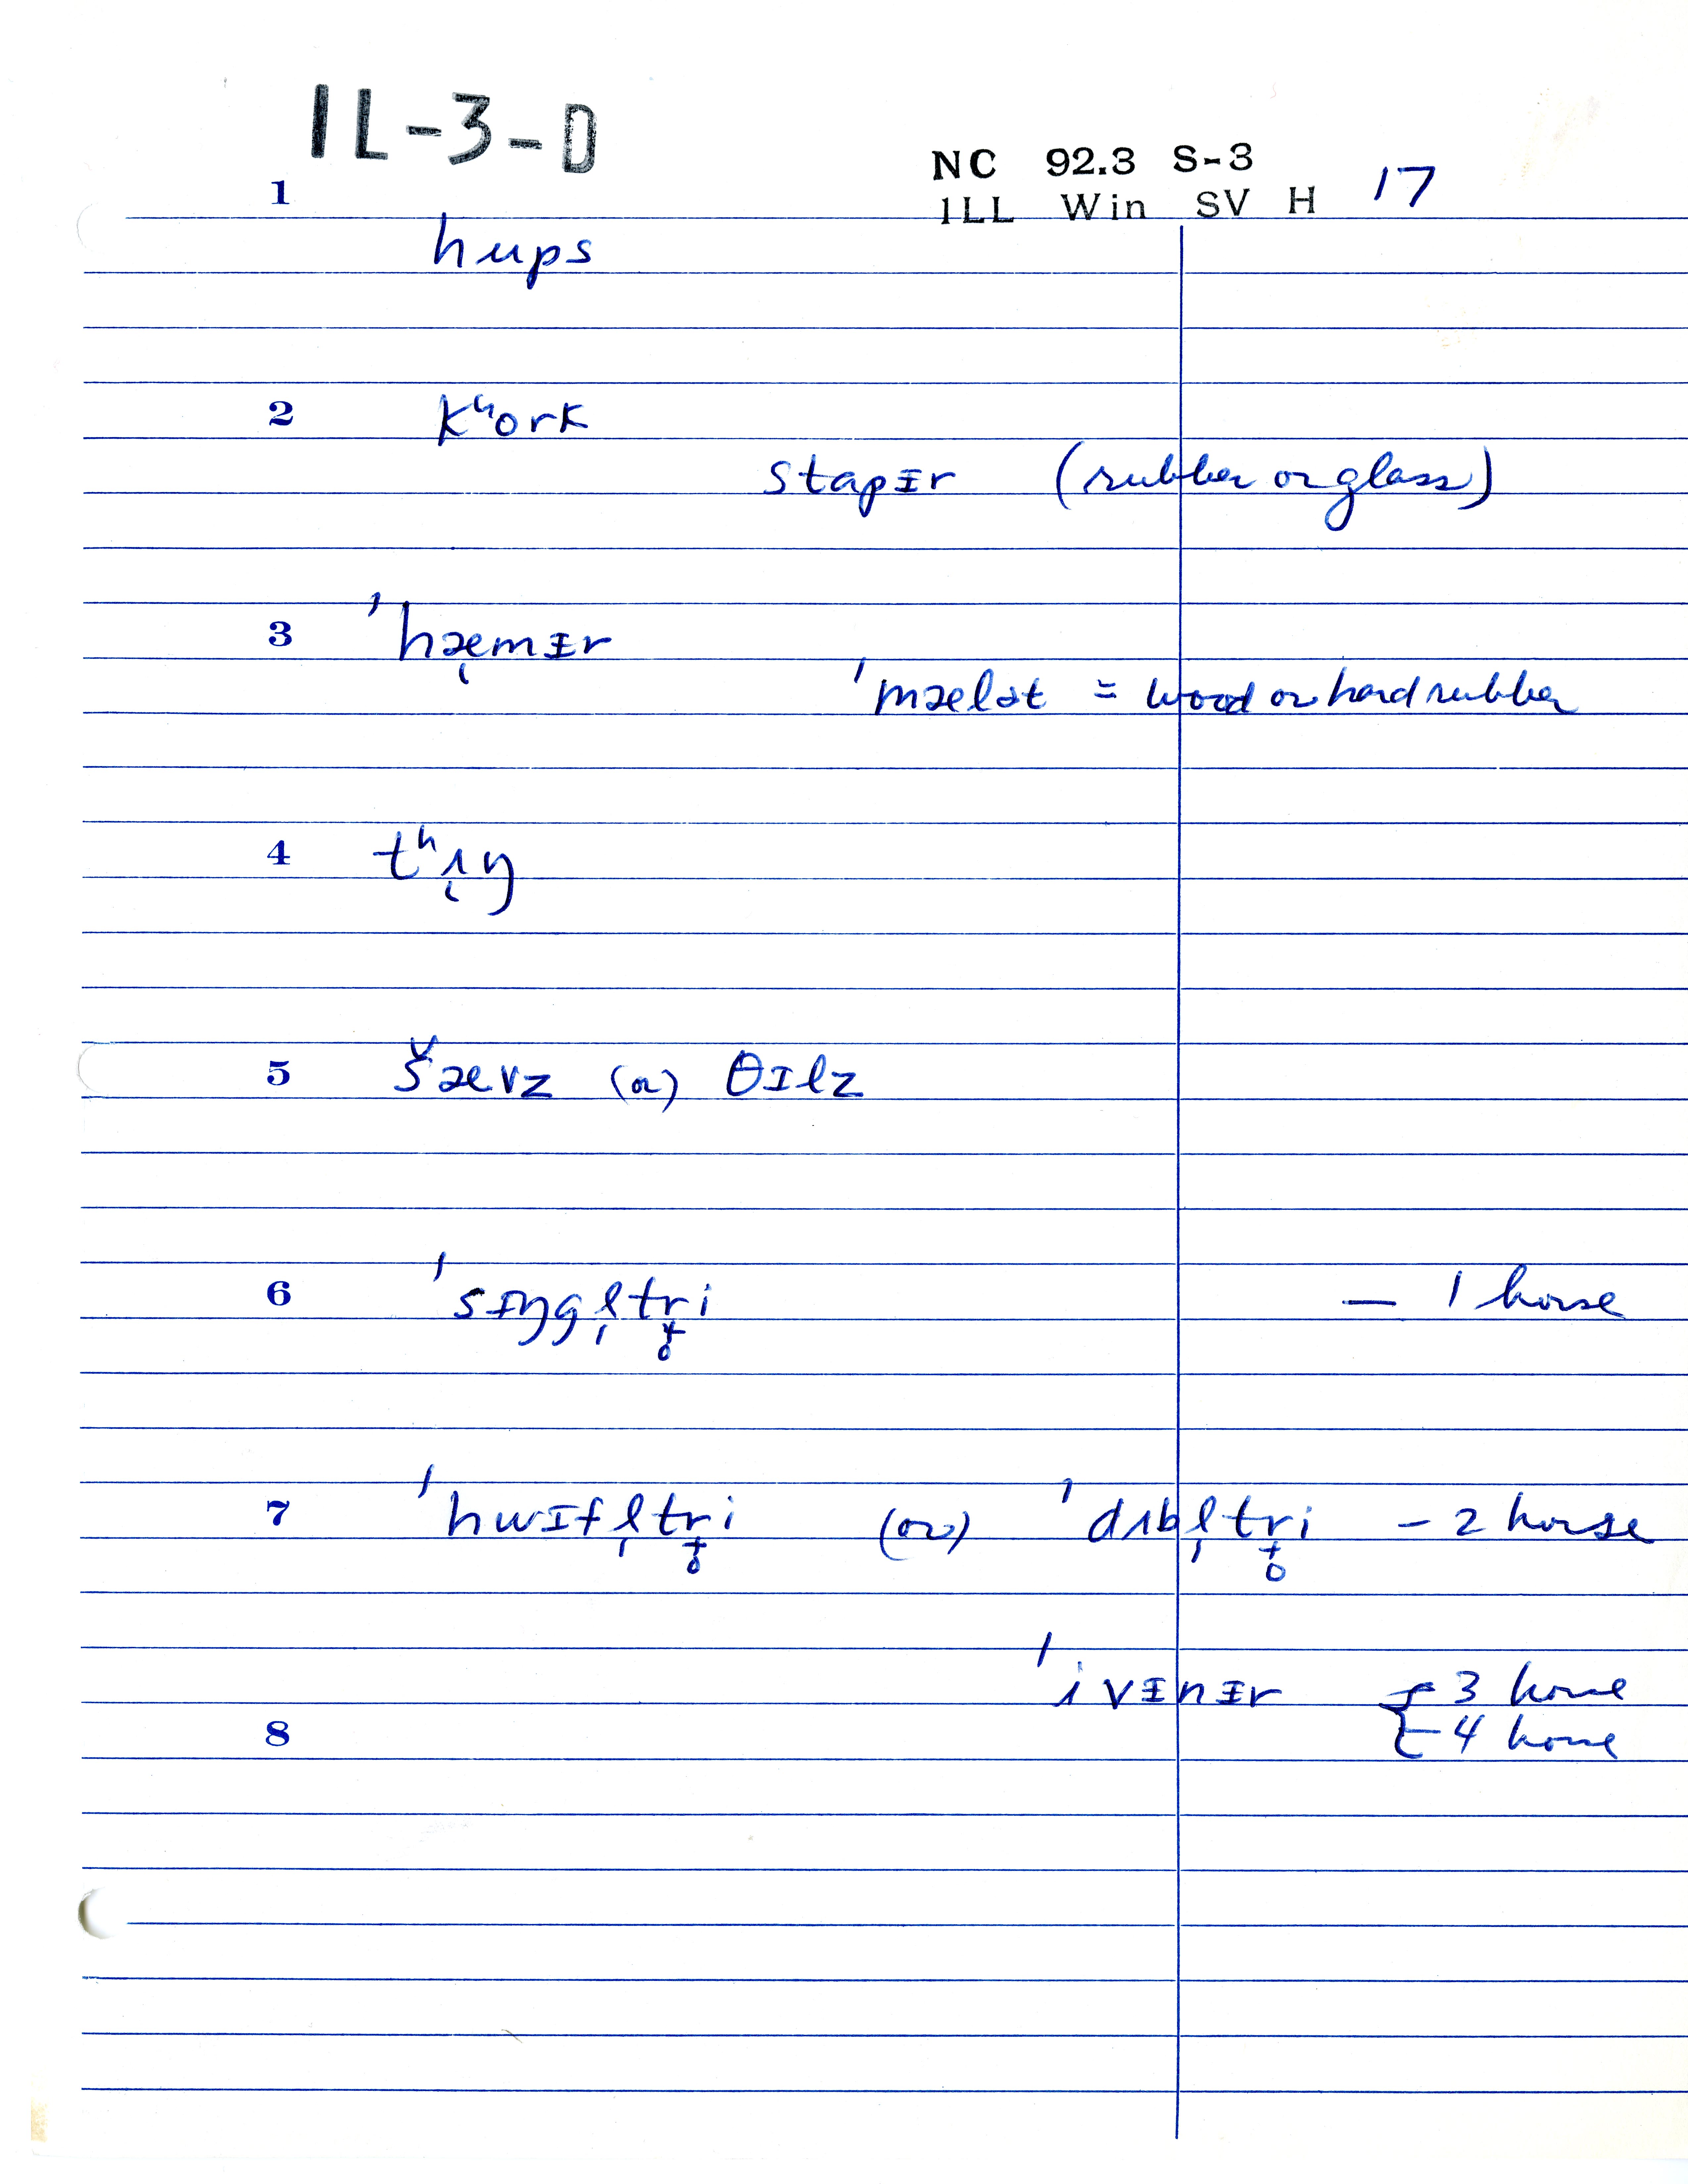 IL-3-D
NC 92.3 S-3
1LL Win SV H 17
1
hups
2 kʰork
stapɪr (rubber or glass)
3 ˈhæ̨mɪr
ˈmælət = wood or hard rubber
4 tʰʌ̨ŋ
5 šævz (or) θɪlz
6 ˈsɪŋgl̩tr̥i — 1 horse
7 ˈhwɪfl̩tr̥i (or) ˈdʌbl̩tr̥i – 2 horse
ˈivɪnɪr { – 3 horse
8 – 4 horse